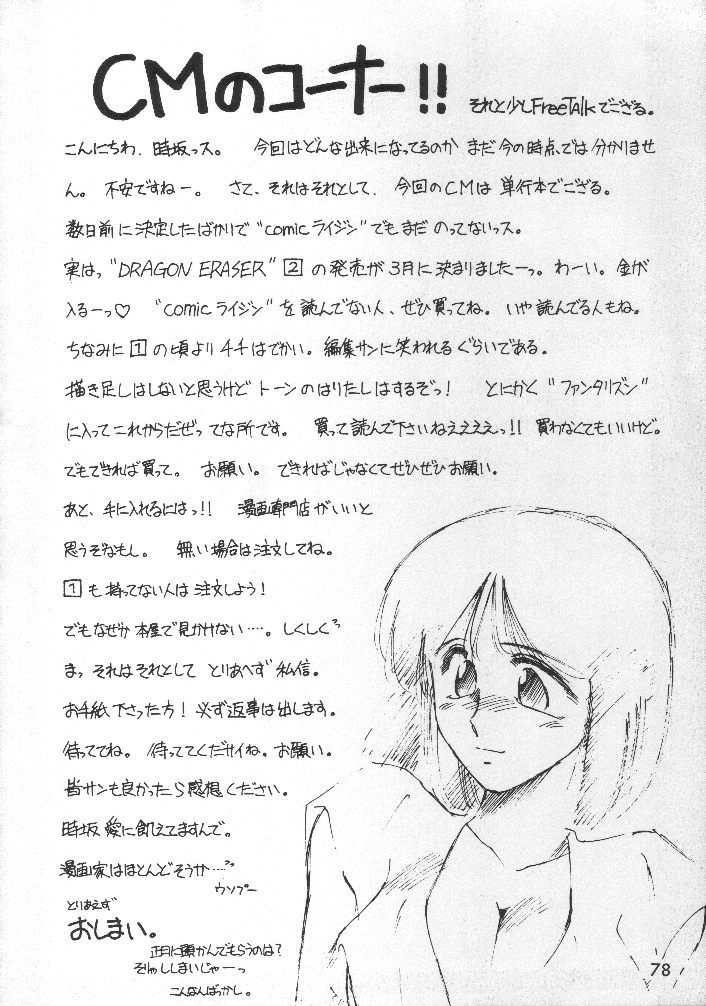 CMのコーナー!!
それと少しFreeTalkでござる。
こんにちわ、時坂っス。 今回はどんな出来になってるのか まだ今の時点では分かりませ
ん。 不安ですねー。 さて、それはそれとして、今回のCMは 単行本でござる。
数日前に決定したばかりで“comicライジン”でもまだ のってないっス。
実はっ“DRAGON ERASER”2の発売が3月に決まりましたーっ。わーい。金が
入るーっ♡ “comicライジン”を読んでない人、ぜひ買ってね。いや読んでる人もね。
ちなみに1の頃より チチはでかい。編集サンに笑われるぐらいである。
描き足しはしないと思うけど トーンのはりたしはするぞっ! とにかく“ファンタリズン”
に入ってこれからだぜってな所です。 買って読んで下さいねええええっ!! 買わなくてもいいけど。
でもできれば買って。 お願い。できればじゃなくてぜひぜひお願い。
あと、手に入れるにはっ!! 漫画専門店がいいと
思うぞなもし。 無い場合は注文してね。
1も持ってない人は注文しよう!
でもなぜか 本屋で見かけない…。しくしく
まっ それはそれとして とりあへず 私信。
お手紙下さった方! 必ず返事は出します。
待っててね。 待っててくだサイね。お願い。
皆サンも良かったら感想ください。
時坂 愛に飢えてますんで。
漫画家はほとんどそうか…
ウソプー
とりあえず
おしまい。
正月に頭かんでもらうのは?
そりゅししまいじゃーっ
こんなんばっかし。
78